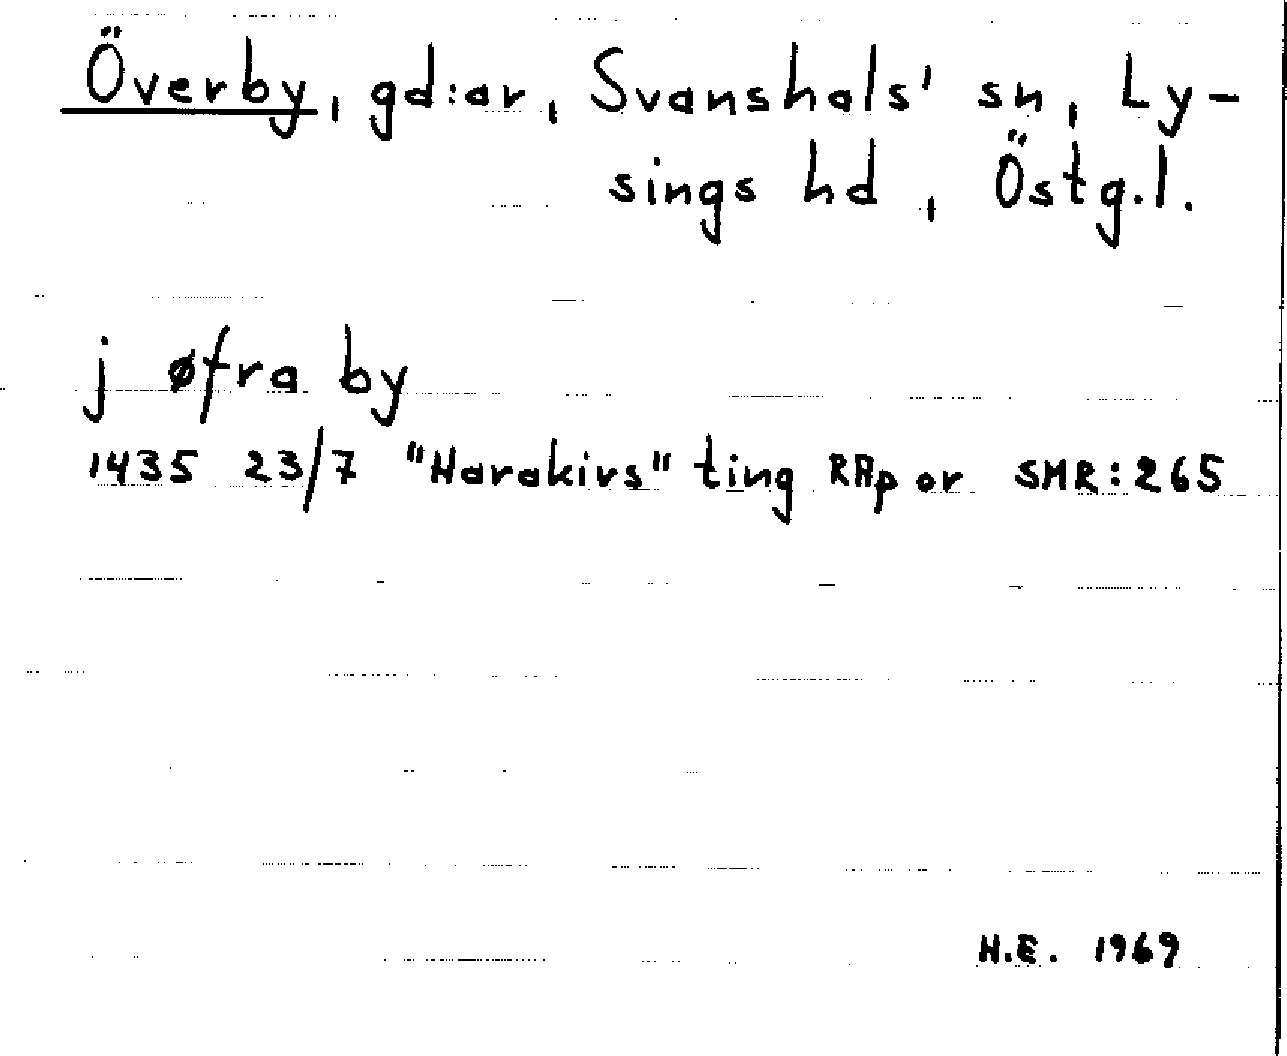 Överby, gd:ar, Svanshals' sn, Ly-
sings hd, Östg.l.
j øfra by
1435 23/7 "Harakirs" ting RAp or SMR:265
H.E. 1969